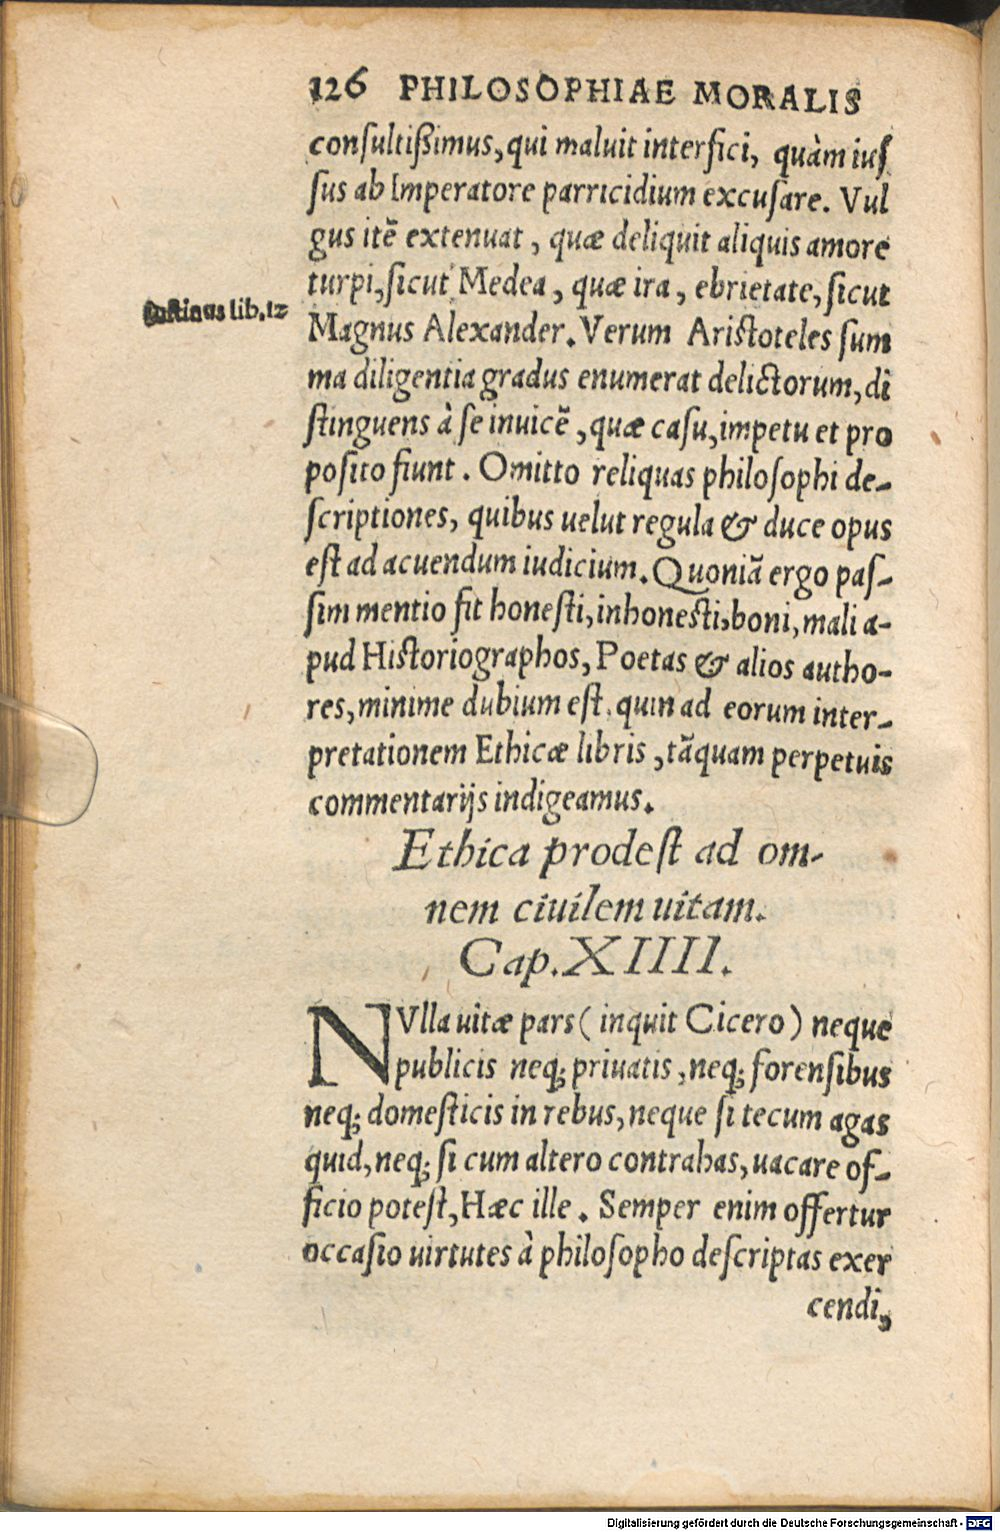 126 PHILOSOPHIAE MORALIS
conſultißimus, qui maluit interfici, quàm iuſ
ſus ab Imperatore parricidium excuſare. Vul
gus itē extenuat, quæ deliquit aliquis amore
turpi, ſicut Medea, quæ ira, ebrietate, ſicut
Iuſtinus lib. 12
Magnus Alexander. Verum Ariſtoteles ſum
ma diligentia gradus enumerat delictorum, di
ſtinguens à ſe inuicē, quæ caſu, impetu et pro
poſito fiunt. Omitto reliquas philoſophi de-
ſcriptiones, quibus uelut regula & duce opus
eſt ad acuendum iudicium. Quoniā ergo paſ-
ſim mentio fit honeſti, inhoneſti, boni, mali a-
pud Hiſtoriographos, Poetas & alios autho-
res, minime dubium eſt quin ad eorum inter-
pretationem Ethicæ libris, tāquam perpetuis
commentarijs indigeamus.
Ethica prodeſt ad om-
nem ciuilem uitam.
Cap. XIIII.
NVlla uitæ pars (inquit Cicero) neque
publicis neq; priuatis, neq; forenſibus
neq; domeſticis in rebus, neque ſi tecum agas
quid, neq; ſi cum altero contrahas, uacare of-
ficio poteſt, Hæc ille. Semper enim offertur
occaſio uirtutes à philoſopho deſcriptas exer
cendi,
Digitalisierung gefördert durch die Deutsche Forschungsgemeinschaft - DFG